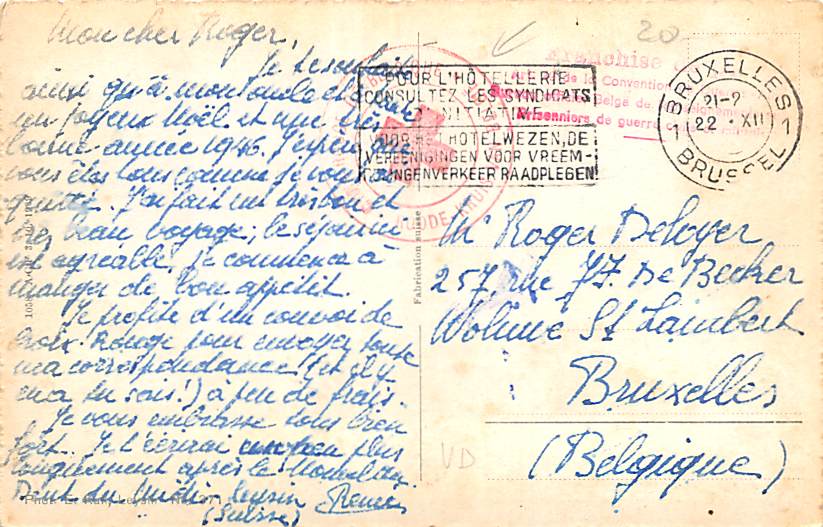 Mon cher Roger,
Je te souhaite
ainsi qu'à mon oncle et
un joyeux Noël et une très
bonne année 1946. J'espère que
vous êtes tous comme je vous ai
quitté. J'ai fait un très bon et
très beau voyage; le séjour
est agréable. Je commence à
manger de bon appétit.
Je profite d'un convoi de
Croix-Rouge pour envoyer toute
ma correspondance (et il y
en a tu sais!) à peu de frais.
Je vous embrasse tous bien
fort. Je t'écrirai un peu plus
longuement après le Nouvel an.
Dent du Midi Leysin
(Suisse)
Fabrication suisse
20
Franchise
de la Convention
Belge de
Prisonniers de guerre
POUR L'HÔTELLERIE
CONSULTEZ LES SYNDICATS
D'INITIATIVE
VOOR HET HOTELWEZEN, DE
VEREENIGINGEN VOOR VREEM-
DELINGENVERKEER RAADPLEGEN
BRUXELLES
1 22 XII 1
BRUSSEL
ROODE KRUIS
Mr Roger Deloyer
257 rue J.J. De Becker
Woluwe St Lambert
Bruxelles
(Belgique)
VD